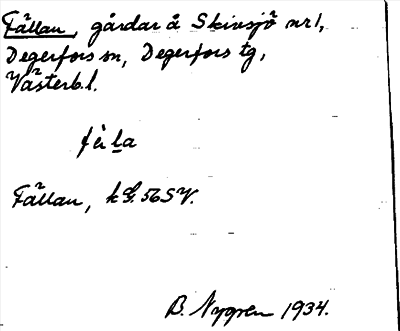 Fällan, gårdar å Skivsjö nr 1,
Degerfors sn, Degerfors tg,
Västerb. l.
Fällan, k G. 56 SV.
B. Nygren 1934.